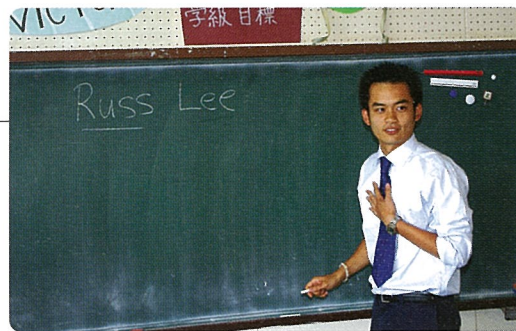 学級目標
Russ Lee